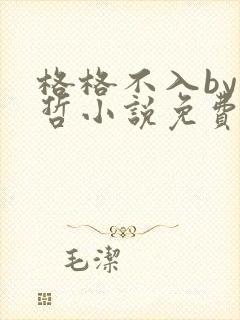 格格不入by
哲小説免費
毛潔